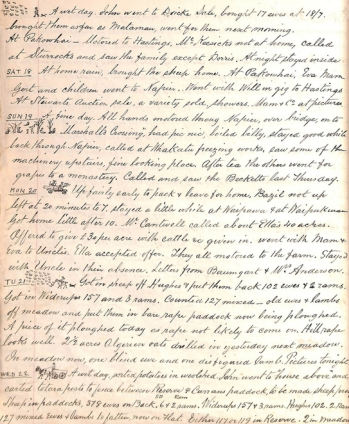 A wet day. John went to Deicke Sale, bought 17 ewes at 18/7.
bought them again as Malaman, went for them next morning.
At Pakowhai - Motored to Hastings, Mr. not at home, called
at Sturrocks and saw the family except Doris. At night stayed inside
SAT 18 At home rain, brought the sheep home. At Pakowhai, Eva Mam
Gert and children went to Napier. Went with Will on gig to Hastings
At Stewarts Auction sale, a variety sold, showers. Mam & Co at pictures
SUN 19 A fine day. All hands motored through Napier, over bridge, on to
Marshalls Crossing, had pic nic, boiled billy, stayed good while
back through Napier, called at Whakatu freezing works, saw some of the
machinery upstairs, fine looking place. After tea the show went for
grapes to a monastery. Called and saw the Becketts last Thursday.
MON 20 Up fairly early to pack & leave for home. Bazil not up
left at 20 minutes to 7. stayed a little while at Waipawa & at Waipukurau
Got home little after 10. Mr. Cantwell called about Ella's 40 acres.
Offered to give £30 per acre with cattle given in. went with Mam &
Eva to Uncles. The accepted offer. They all motored to the farm. Stayed
with Uncle in their absence. Letters from Baumgart & Mrs Anderson.
TU 21 Got in sheep off Hughes & put them back 102 ewes & 2 rams.
Got in Widerups 157 and 3 rams. Counted 127 mixed - old ewes & lambs
off meadow and put them in bare rape paddock now being ploughed.
A piece of it ploughed today as rape not likely to come on. Hill rape
looks well. 2½ acres Algerian oats drilled in yesterday next meadow.
In meadow now, one blind ewe and one disfigured lamb. Pictures tonight
WED 22 A wet day, sorted potatoes in woolshed. John went to "house above" and
carted totara posts to fence between Reserve & Currans paddock, to be made sheep proof
Sheep in paddocks, 378 ewes on Back, 6 & 2 rams. Widerups 157 & 3 rams. Hughes 102. 2 Rams
127 mixed ewes & lambs to fatten now on flat. Either 117 or 119 in Reserve. 2 in Meadow